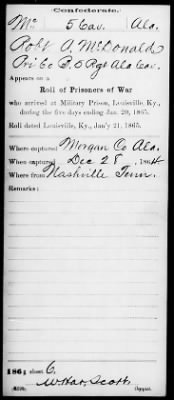 Confederate.
Mc 5 Cav. Ala.
Robt A. McDonald
Pri Co B. 5 Rgt Ala Cav.
Appears on a
Roll of Prisoners of War
who arrived at Military Prison, Louisville, Ky.,
during the five days ending Jan. 20, 1865.
Roll dated Louisville, Ky., Jan'y 21, 1865.
Where captured Morgan Co Ala.
When captured Dec 28, 1864
Where from Nashville Tenn.
Remarks:
186 sheet 6.
Scott
Copyist.